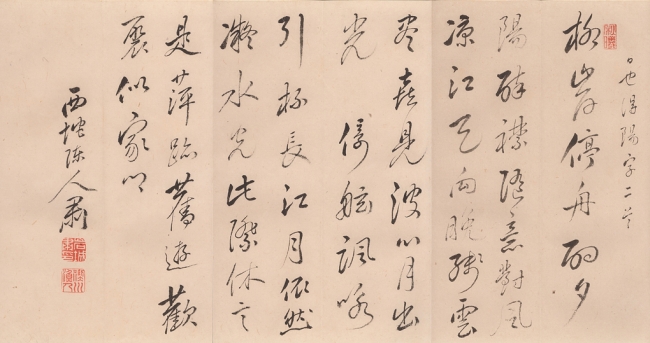 得陽字二首
柳岸停舟酌夕
陽醉襟隨意對風
涼江天向晚殘雲
盡喜見波心月出
光 倚舷諷咏
引杯長江月依然
凝水光此際休言
是萍跡舊遊歡
裏似家鄉
西陳人